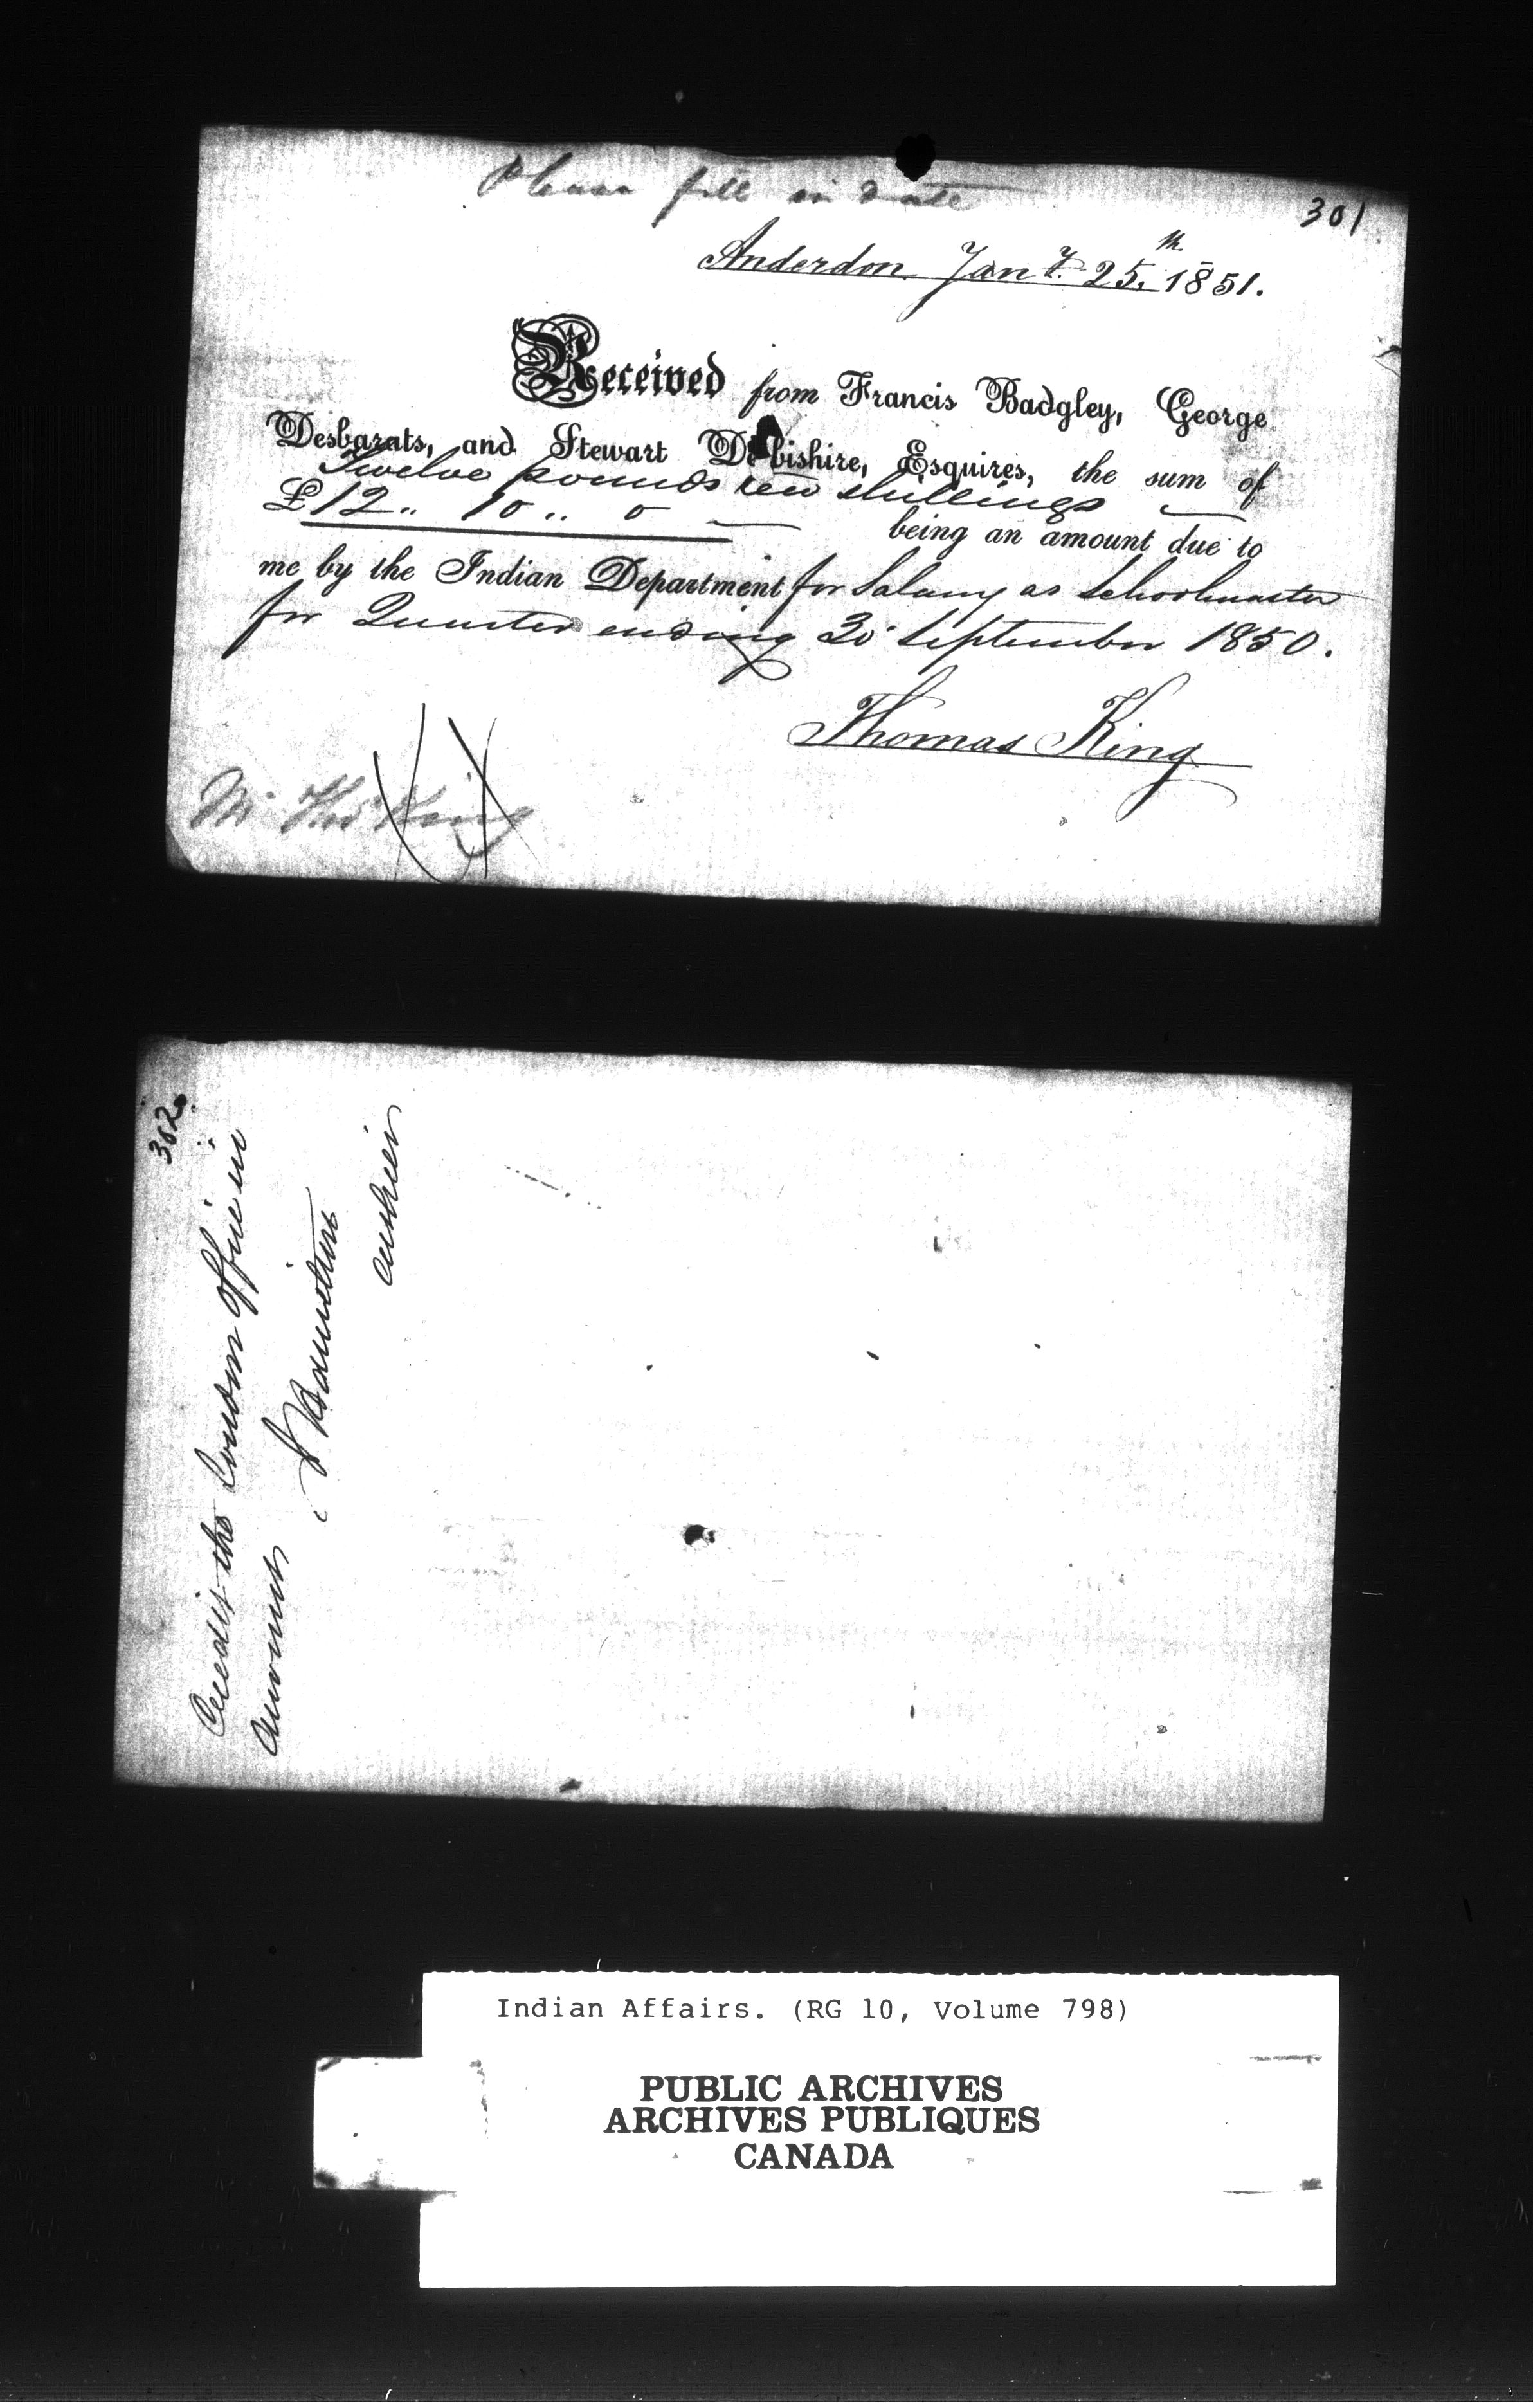 Please fill in date
301
Anderdon Jany. 25.th 1851.
Received from Francis Badgley, George
Desbarats, and Stewart De bishire, Esquires, the sum of
Twelve pounds ten shillings
£12 .. 10 .. 0 being an amount due to
me by the Indian Department for Salary as Schoolmaster
for Quarter ending 30 September 1850.
Thomas King
Mr Thos King
302
Credit the London Office in
Account
Cashier
Indian Affairs. (RG 10, Volume 798)
PUBLIC ARCHIVES
ARCHIVES PUBLIQUES
CANADA